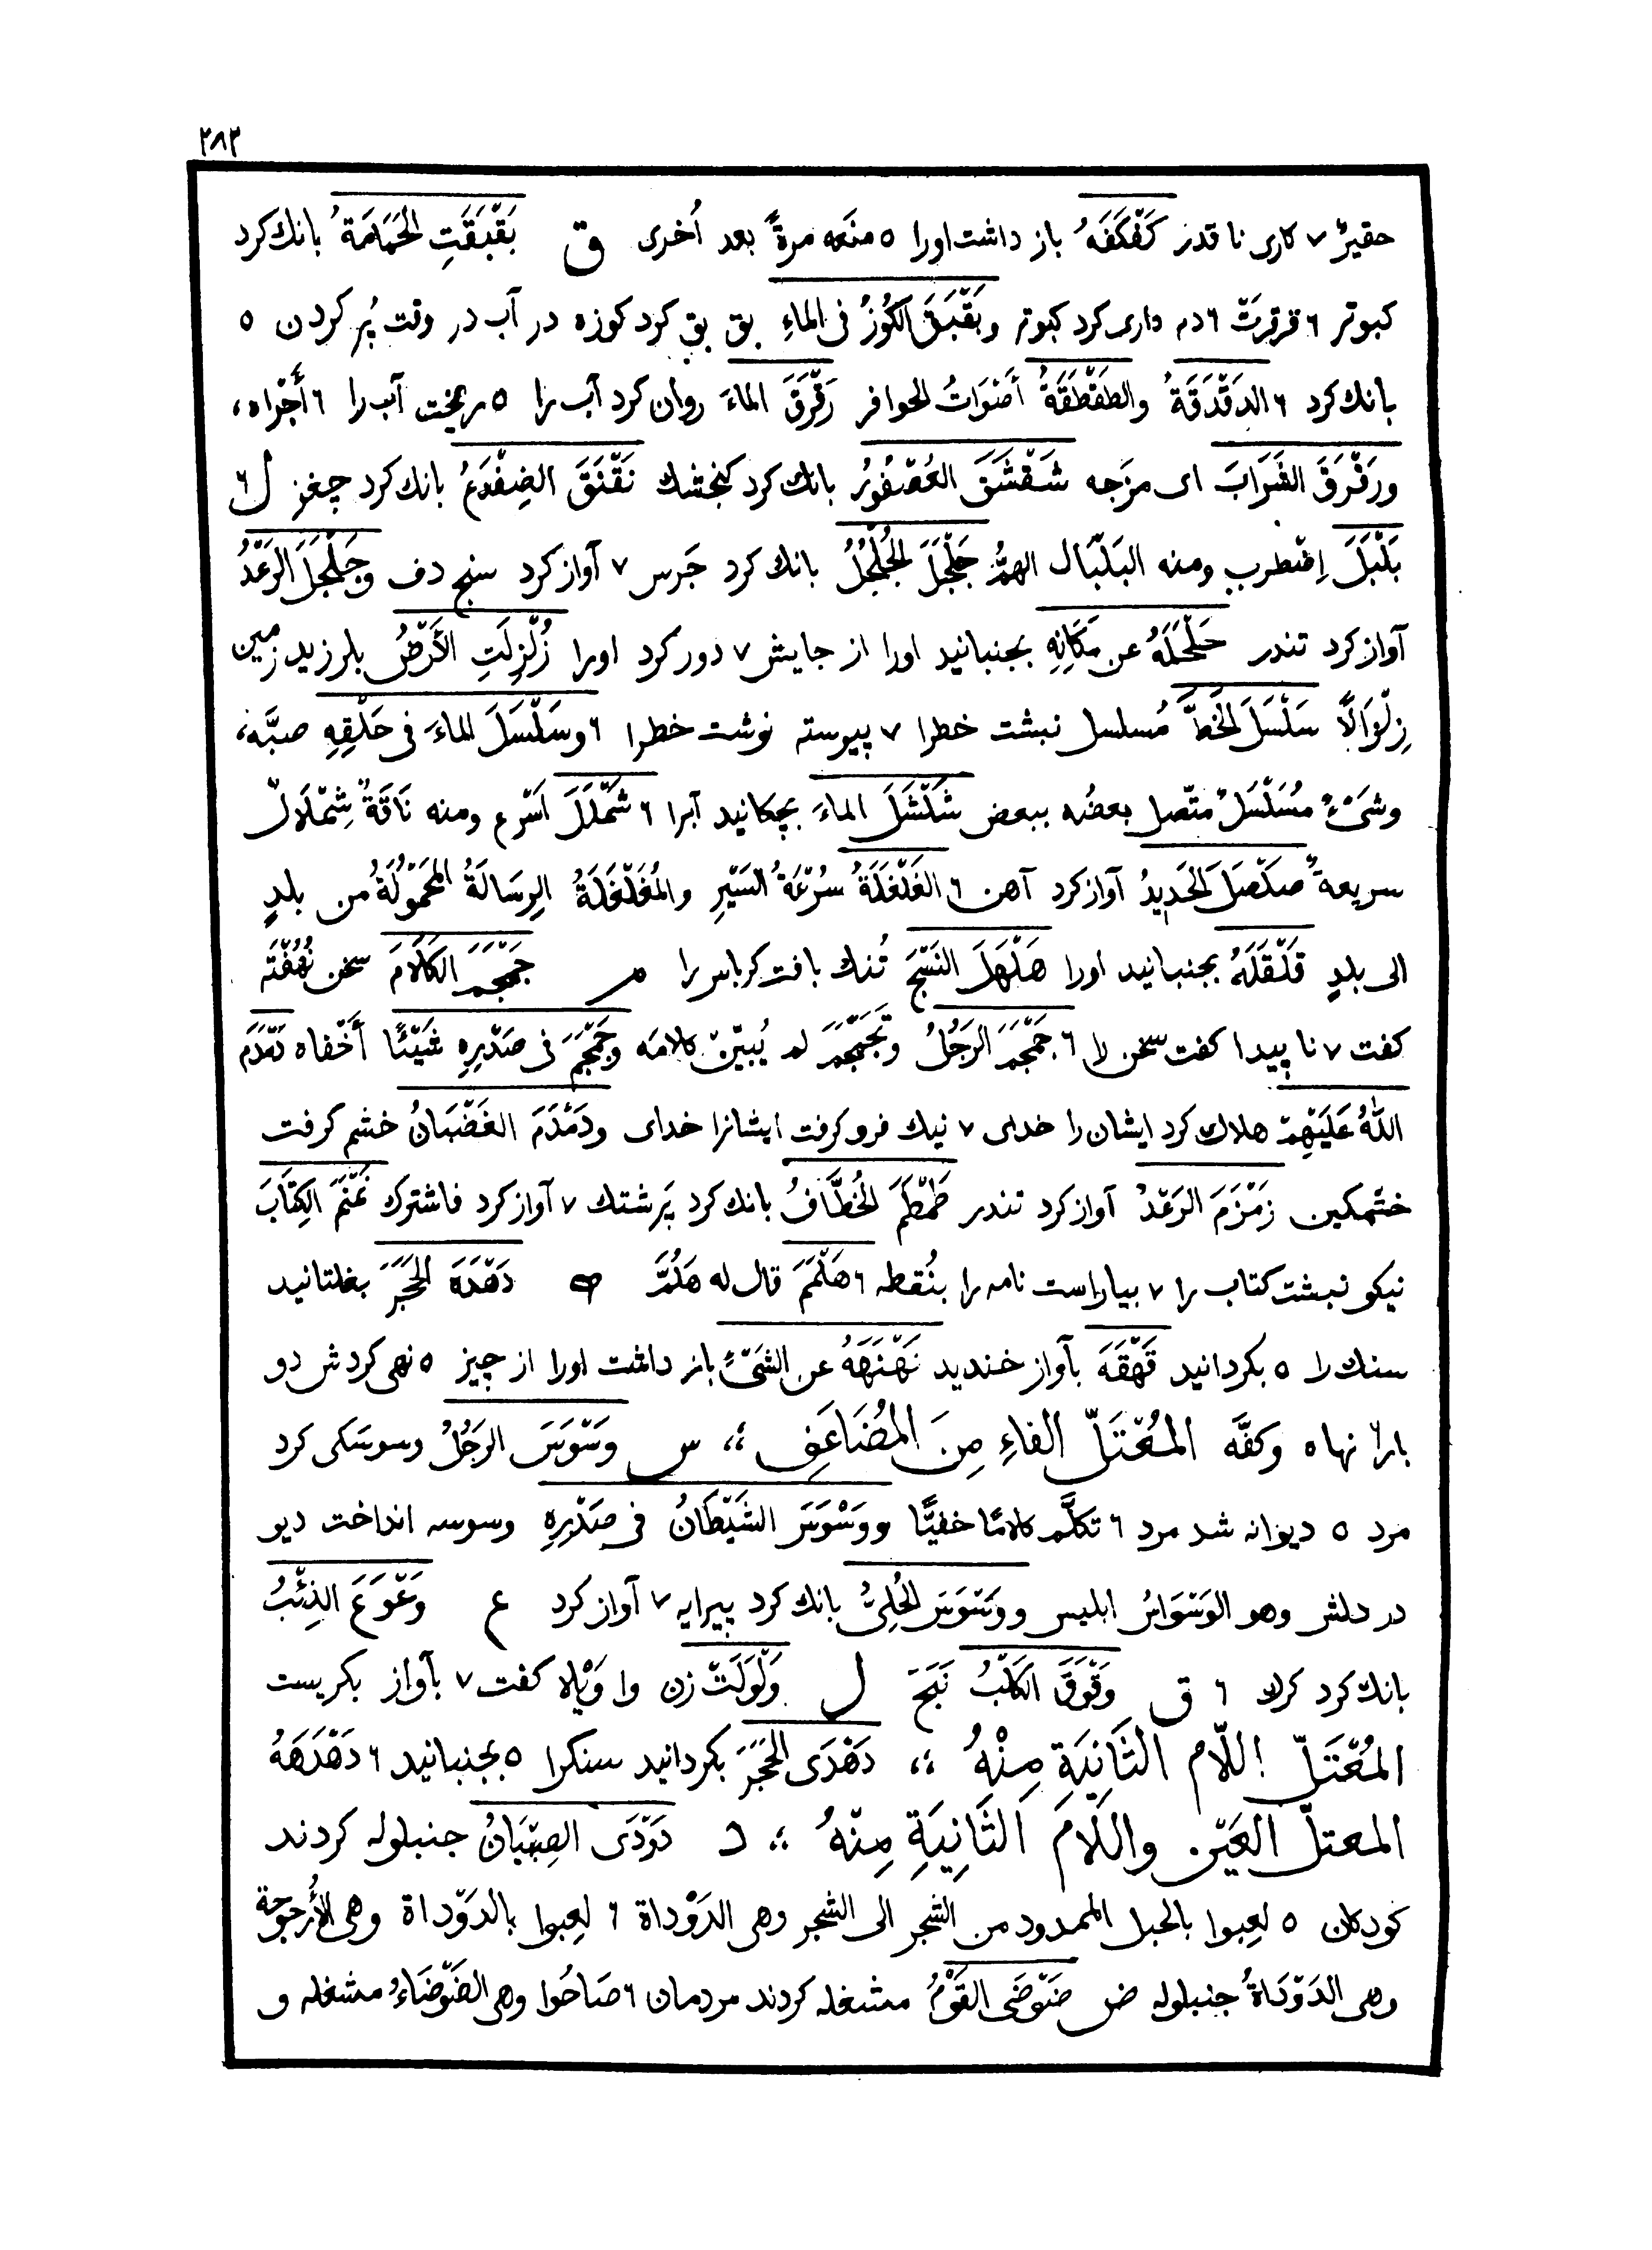 ٢٨٣
حقيرٌ ٧ كارى نا قدر كَفْكَفَهُ باز داشت اورا ٥ منَعه مرةً بعد اُخرى ق بَقْبَقَتِ الحَمَامَةُ بانك كرد
كبوتر ٦ قرقرتْ ٦ دم دارى كرد كبوتر وبَقْبَقَ الكُوزُ فى الماءِ بق بق كرد كوزه در آب در وقت پُر كردن ٥
بانك كرد ٦ الدقْدَقَةُ والطَقْطَقَةُ أصْوَاتُ الحوافر رَقْرَقَ الماءَ روان كرد آب را ٥ ريخت آب را ٦ أجْراه،
ورَقْرَقَ الشَرَابَ اى مزَجه شَقْشَقَ العُصْفُورُ بانك كرد كنجشك نَقْنَقَ الضِفْدَعُ بانك كرد چغز ل ٦
بَلْبَلَ اِضْطرب ومنه البَلْبَال الهمُّ جَلْجَلَ الجُلْجُلُ بانك كرد جَرس ٧ آواز كرد سنج دف وجَلْجَلَ الرَعْدُ
آواز كرد تندر حَلْحَلَهُ عن مَكَانِهِ بجنبانيد اورا از جايش ٧ دور كرد اورا زُلْزِلَتِ الأَرْضُ بلرزيد زمين
زِلْزَالًا سَلْسَلَ الخَطَّ مُسلسل نبشت خطرا ٧ پيوسته نوشت خطرا ٦ وسَلْسَلَ الماءَ فى حَلْقِهِ صبَّه،
وشَىْءٌ مُسَلْسَلٌ متّصل بعضُه ببعض شَلْشَلَ الماءَ بچكانيد آبرا ٦ شَمْلَلَ اَسْرع ومنه نَاقَةٌ شِمْلَالٌ
سريعةٌ صَلْصَلَ الحَدِيدُ آواز كرد آهن ٦ الغَلْغَلَةُ سُرْعَةُ السَيْرِ والمُغَلْغَلَةُ الرِسَالَةُ المَحْمُولَةُ من بلدٍ
الى بلدٍ قَلْقَلَهُ بجنبانيد اورا هَلْهَلَ النَسْجَ تُنك بافت كرباس را م جَمْجَمَ الكَلَامَ سخن نُهُفْتَه
كفت ٧ نا پيدا كفت سخن را ٦ جَمْجَمَ الرَجُلُ وتَجَمْجَمَ لم يُبيّنْ كلامَه وجَمْجَمَ فى صَدْرِهِ شَيْئًا أخْفاه دَمْدَمَ
اللّهُ عَلَيْهِمْ هلاك كرد ايشان را خداى ٧ نيك فرو كرفت ايشانرا خداى ودَمْدَمَ الغَضْبَانُ خشم كرفت
خشمكين زَمْزَمَ الرَعْدُ آواز كرد تندر طَمْطَمَ الخُطَّافُ بانك كرد پَرشتك ٧ آواز كرد فاشترك نَمْنَمَ الكِتَابَ
نيكو نبشت كتاب را ٧ بياراست نامه را بنُقطه ٦ هَلْمَمَ قال له هَلُمَّ ه دَهْدَهَ الحَجَرَ بغلتانيد
سنك را ٥ بكردانيد قَهْقَهَ بآواز خنديد نَهْنَهَهُ عن الشَىْءِ باز داشت اورا از چيز ٥ نهى كردش دو
بار٦ نهاه وكفَّه المُعْتَلّ الفاءِ مِنَ المُضَاعَفِ ؛، س وَسْوَسَ الرَجُلُ وسوسكى كرد
مرد ٥ ديوانه شد مرد ٦ تكلَّم كلامًا خفيًّا ووَسْوَسَ الشَيْطَانُ فى صَدْرِهِ وسوسه انداخت ديو
در دلش وهو الوَسْوَاسُ ابليس ووَسْوَسَ الحُلِىُّ بانك كرد پيرايه ٧ آواز كرد ع وَعْوَعَ الذِئْبُ
بانك كرد كرك ٦ ق وَقْوَقَ الكَلْبُ نَبَحَ ل وَلْوَلَتْ زن وا وَيْلا كفت ٧ بآواز بكريست
المُعْتَلّ اللّام الثَانِيَةِ مِنْهُ ؛، دَهْدَى الحَجَرَ بكردانيد سنكرا ٥ بجنبانيد ٦ دَهْدَهَهُ
المعتلّ العَيْن واللَامِ الثَانِيَةِ مِنْهُ ؛، د دَوْدَى الصِبْيَانُ جنبلوله كردند
كودكان ٥ لعِبوا بالحبل الممدود من الشجر الى الشجر وهى الدَوْداة ٦ لعِبوا بالدَوْداة وهى الأُرجوحة
وهى الدَوْدَاةُ جنبلوله ض ضَوْضَى القَوْمُ مشغله كردند مردمان ٦ صَاحُوا وهى الضَوْضَاءُ مشغله و